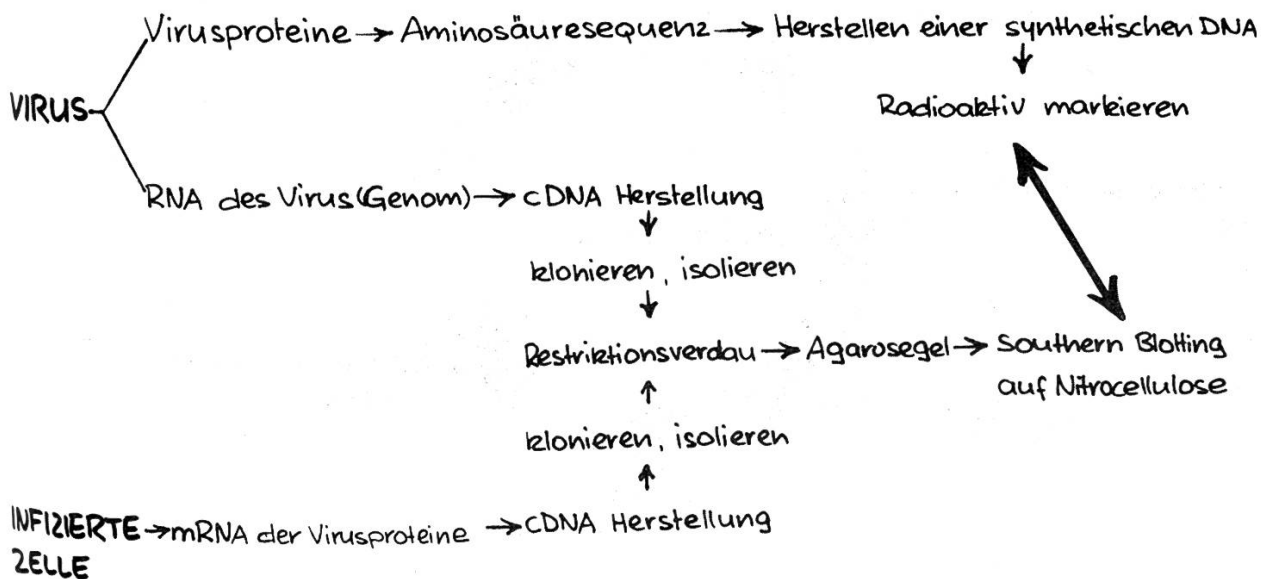 Virusproteine → Aminosäuresequenz → Herstellen einer synthetischen DNA
↓
VIRUS
Radioaktiv markieren
RNA des Virus (Genom) → cDNA Herstellung
↓
klonieren, isolieren
↓
Restriktionsverdau → Agarosegel → Southern Blotting
auf Nitrocellulose
↑
klonieren, isolieren
↑
INFIZIERTE → mRNA der Virusproteine → cDNA Herstellung
ZELLE